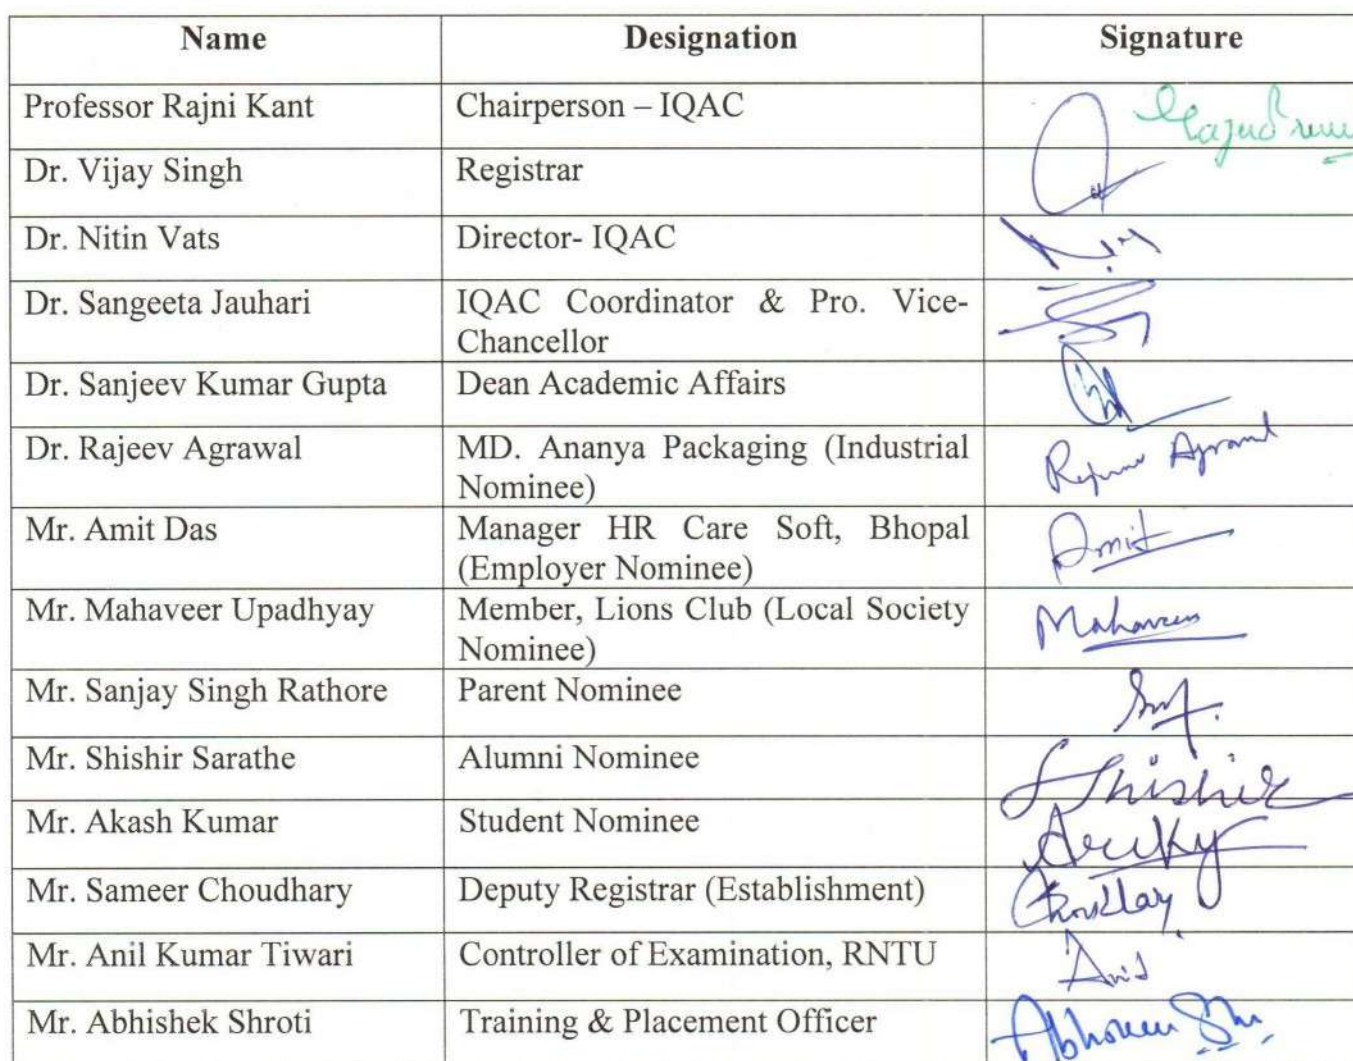 Name Designation Signature
Professor Rajni Kant Chairperson – IQAC
Dr. Vijay Singh Registrar
Dr. Nitin Vats Director- IQAC
Dr. Sangeeta Jauhari IQAC Coordinator & Pro. Vice-
Chancellor
Dr. Sanjeev Kumar Gupta Dean Academic Affairs
Dr. Rajeev Agrawal MD. Ananya Packaging (Industrial
Nominee)
Mr. Amit Das Manager HR Care Soft, Bhopal Amit
(Employer Nominee)
Mr. Mahaveer Upadhyay Member, Lions Club (Local Society
Nominee)
Mr. Sanjay Singh Rathore Parent Nominee
Mr. Shishir Sarathe Alumni Nominee Shishir
Mr. Akash Kumar Student Nominee
Mr. Sameer Choudhary Deputy Registrar (Establishment)
Mr. Anil Kumar Tiwari Controller of Examination, RNTU
Mr. Abhishek Shroti Training & Placement Officer